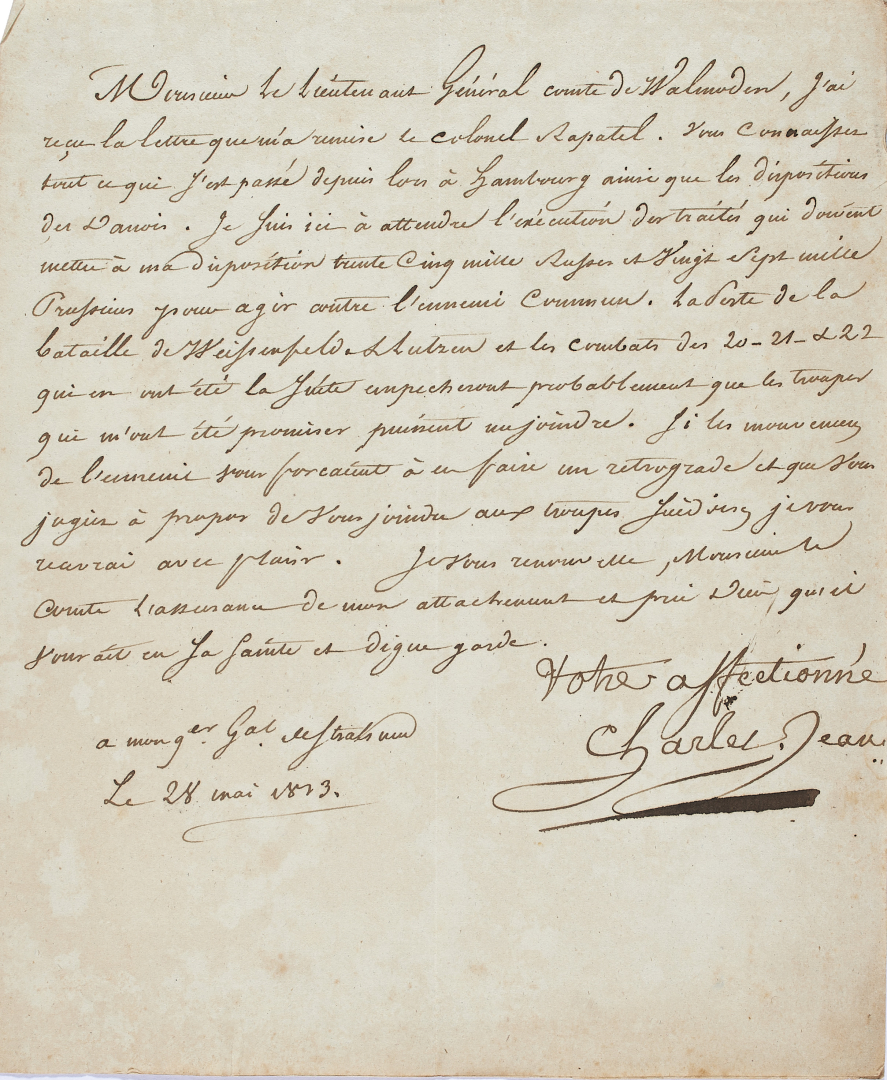 Monsieur Le Lieutenant Général comte de Walmoden, J'ai
reçu la lettre que m'a remise le colonel Rapatel. Vous connaissez
tout ce qui s'est passé depuis lors à hambourg ainsi que les dispositions
des Danois. Je suis ici à attendre l'exécution des traités qui doivent
mettre à ma disposition trente Cinq mille Russes et Vingt Sept mille
Prussiens pour agir contre l'ennemi Commun. La Perte de la
bataille de Weissenfeld & Lutzen et les combats des 20 - 21 - & 22
qui en ont été la Suite empecheront probablement que les troupes
qui m'ont été promises puissent me joindre. Si les mouvemens
de l'ennemi vous forcaient à en faire un retrograde et que vous
jugiez à propos de vous joindre aux troupes Suédoises, je vous
recevrai avec plaisir. Je vous renouvelle, Monsieur le
Comte L'assurance de mon attachement et prie Dieu qu'il
vous ait en Sa Sainte et digne garde.
Votre affectionné
Charles Jean
a mon q.er Gal. de Stralsund
Le 28 mai 1813.